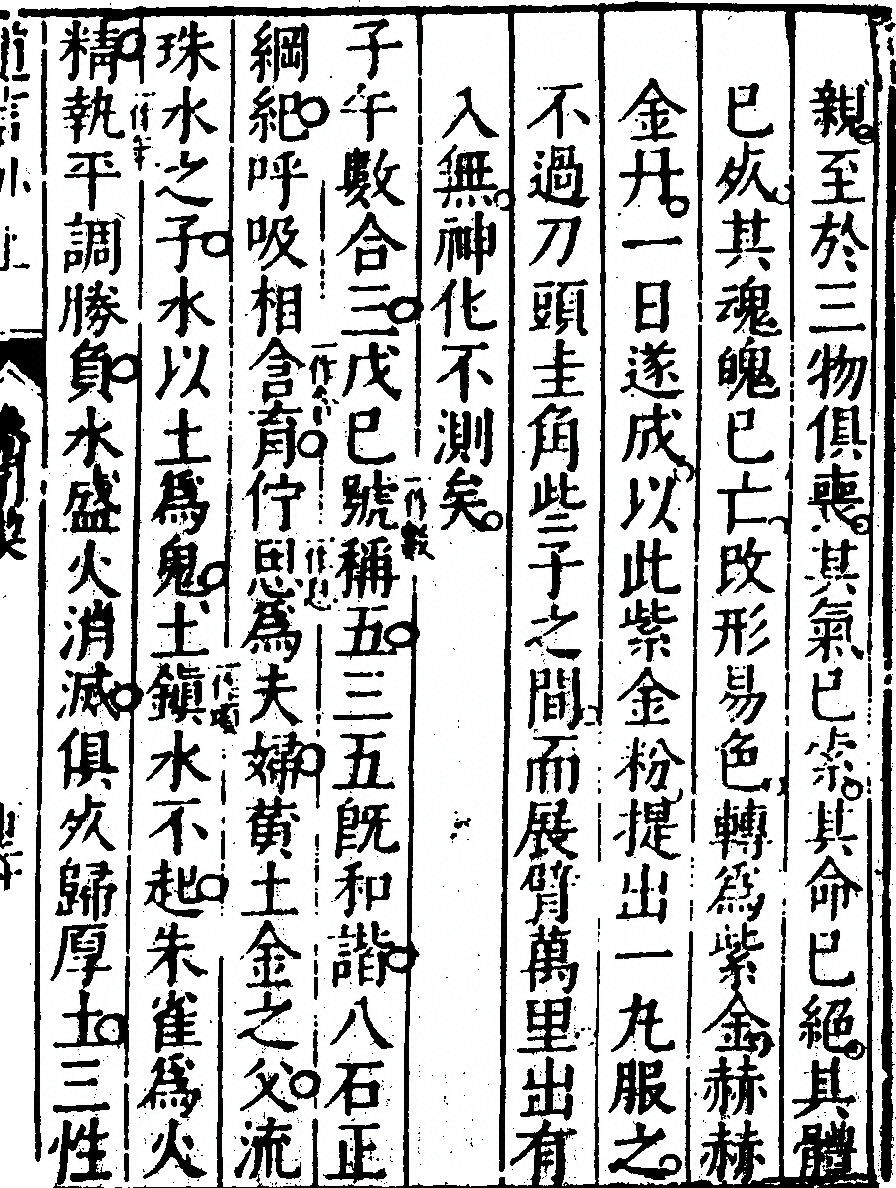 親至於三物俱喪其氣已索其命已絕其體
已灰其魂魄已亡改形易色轉爲紫金赫赫
金丹一日遂成以此紫金粉提出一丸服之
不過刀頭圭角些子之間而展臂萬里出有
入無神化不測矣
子午數合三戊巳號稱五三五旣和諧八石正
一作數
綱紀呼吸相含育佇思爲夫婦黄土金之父流
一作含
一作起
珠水之子水以土爲鬼土鎭水不起朱雀爲火
一作塡
精執平調勝負水盛火消滅俱灰歸厚土三性
一作